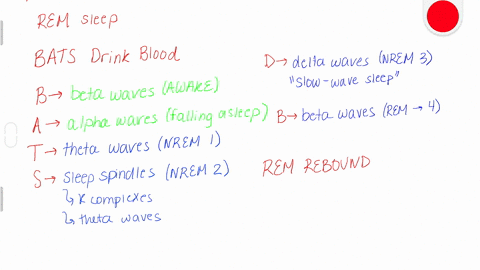 REM sleep
BATS Drink Blood
B→ beta waves (AWAKE)
A→ alpha waves (falling asleep)
T→ theta waves (NREM 1)
S→ sleep spindles (NREM 2)
↳ K complexes
↳ theta waves
D→ delta waves (NREM 3)
"slow-wave sleep"
B→ beta waves (REM → 4)
REM REBOUND